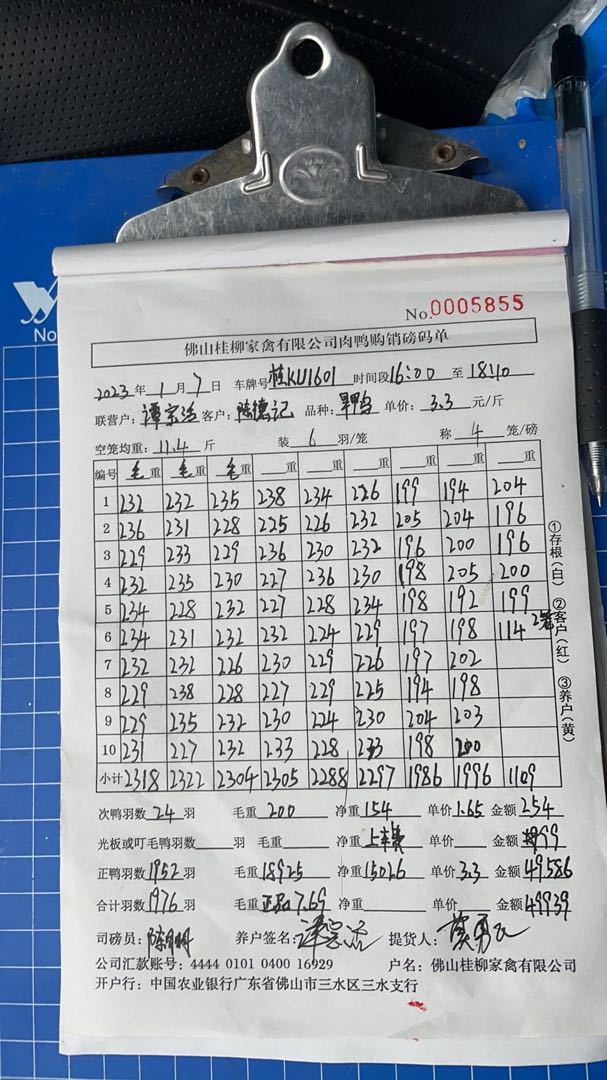 No
No.0005855
佛山桂柳家禽有限公司肉鸭购销磅码单
2023年1月7日 车牌号桂KU1601 时间段16:00至18:10
联营户:谭宗活 客户:陈德记 品种: 单价:3.3元/斤
空笼均重:11.4斤 装6羽/笼 称4笼/磅
编号 毛重 毛重 毛重 重 重 重 重 重 重
1 232 232 235 238 234 226 199 194 204
2 236 231 228 225 226 232 205 204 196
3 229 233 229 236 230 232 196 200 196
4 232 235 230 227 236 230 198 205 200
5 234 228 232 227 228 234 198 192 199
6 234 231 232 232 224 229 197 198 114 2笼
7 232 232 226 230 229 226 197 202
8 229 238 228 227 229 225 194 198
9 229 235 232 230 224 230 204 203
10 231 227 232 233 228 233 198 200
小计 2318 2322 2304 2305 2288 2297 1986 1996 1109
①存根(白) ②客户(红) ③养户(黄)
次鸭羽数24羽 毛重200 净重154 单价1.65 金额254
光板或叮毛鸭羽数 羽 毛重 净重 单价 金额
正鸭羽数1952羽 毛重18925 净重15026 单价3.3 金额49586
合计羽数1976羽 毛重正品7.69 净重 单价 金额49939
司磅员: 养户签名:谭宗活 提货人:
公司汇款账号:4444 0101 0400 16929 户名:佛山桂柳家禽有限公司
开户行:中国农业银行广东省佛山市三水区三水支行